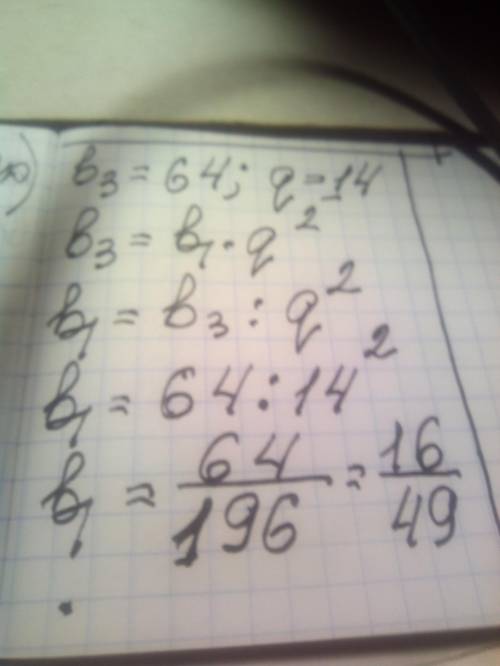 ю)
b₃ = 64; q = 14
b₃ = b₁ · q²
b₁ = b₃ : q²
b₁ = 64 : 14²
b₁ = 64/196 = 16/49